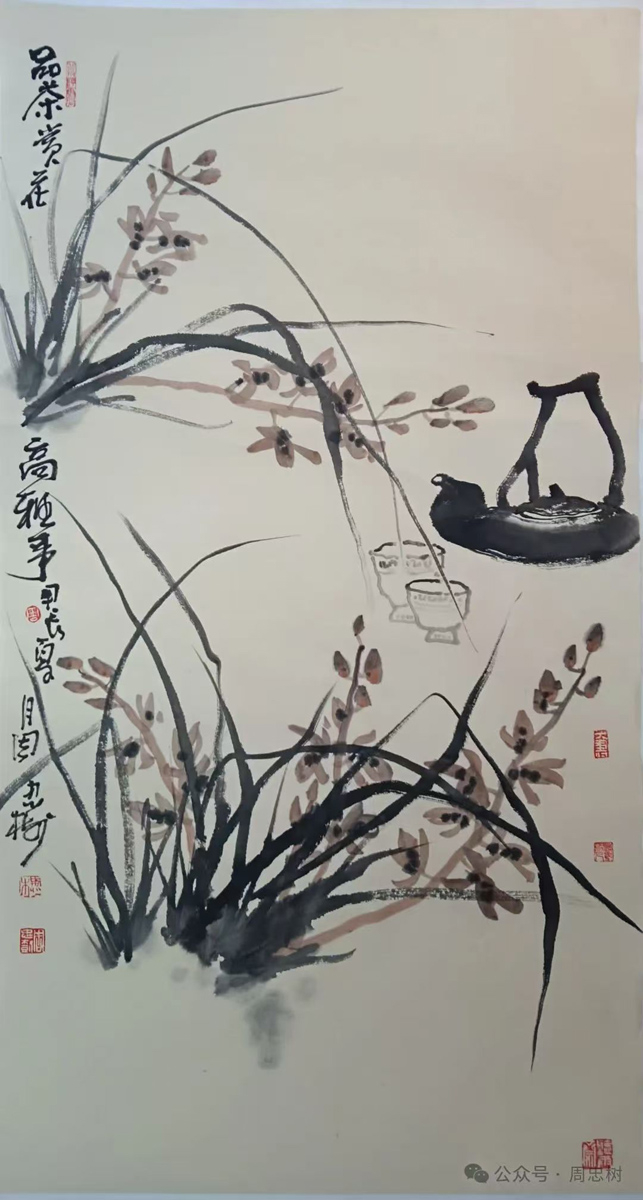 品茶赏花
高雅事甲辰夏
月周忠树
公众号·周忠树